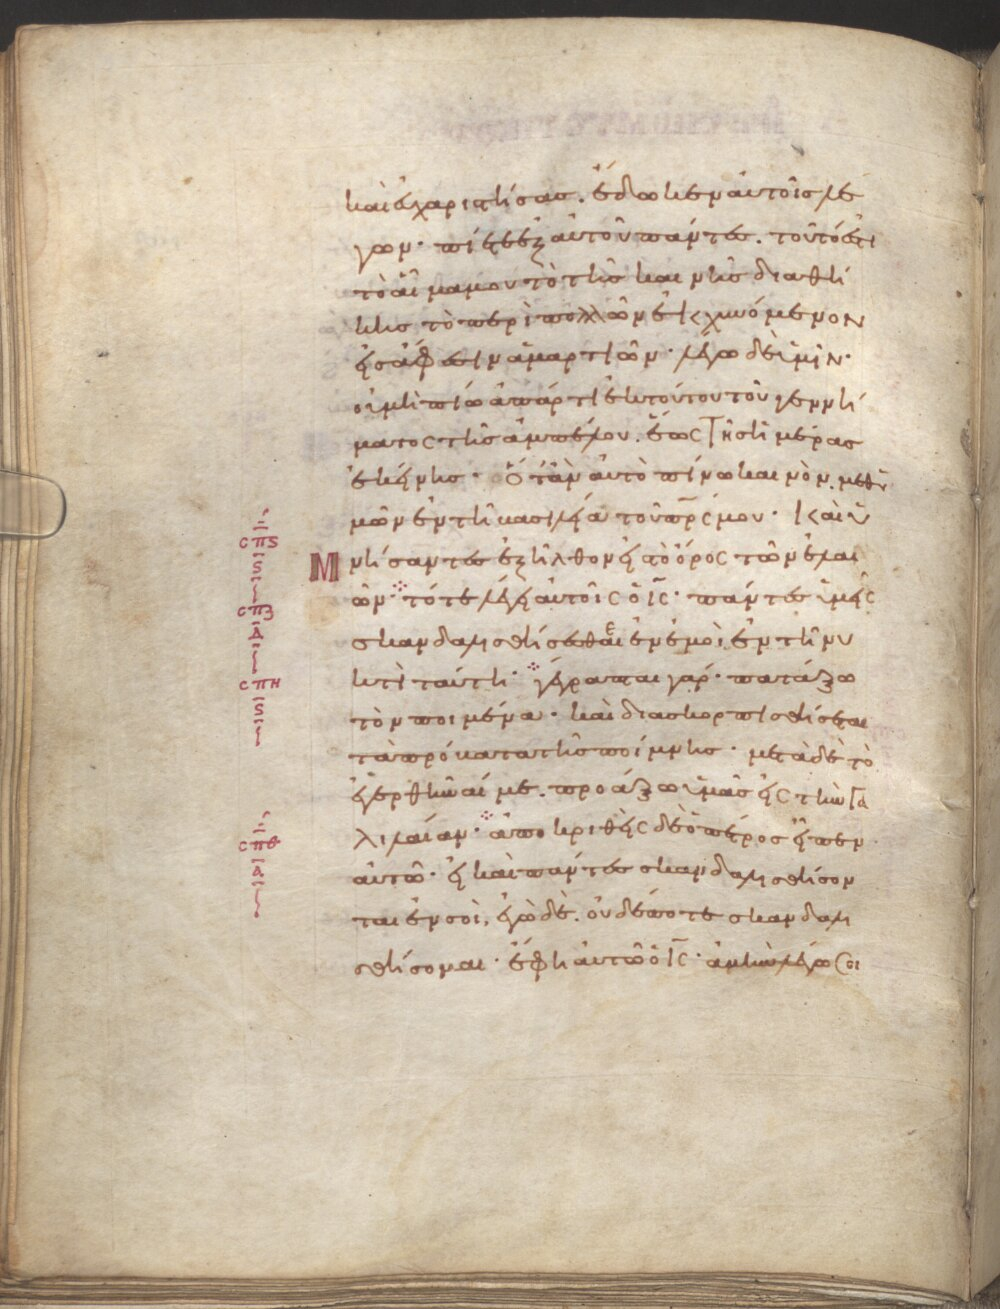 καὶ εὐχαριστήσας. ἔδωκεν αὐτοῖς λέ
γων· πίετε ἐξ αὐτοῦ πάντες. τοῦτό ἐστι
τὸ αἷμα μου τὸ τῆς καινῆς διαθή
κης τὸ περὶ πολλῶν ἐκχυνόμενον
εἰς ἄφεσιν ἁμαρτιῶν· λέγω δὲ ὑμῖν·
οὐ μὴ πίω ἀπάρτι ἐκ τούτου τοῦ γεννή
ματος τῆς ἀμπέλου. ἕως τῆς ἡμέρας
ἐκείνης· ὅταν αὐτὸ πίνω καινὸν μεθ ὑ
μῶν ἐν τῆ βασιλεία τοῦ πρς μου· Καὶ ὑ
μνήσαντες ἐξῆλθον εἰς τὸ ὄρος τῶν ἐλαι
ῶν· τότε λέγει αὐτοῖς ὁ ις· πάντες ὑμεῖς
σκανδαλισθήσεσθε ἐν ἐμοὶ ἐν τῆ νυ
κτὶ ταύτη· γέγραπται γάρ· πατάξω
τὸν ποιμένα· καὶ διασκορπισθήσεται
τὰ πρόβατα τῆς ποίμνης· μετὰ δὲ τὸ
ἐγερθῆναί με. προάξω ὑμᾶς εἰς τὴν Γα
λιλαίαν· ἀποκριθεὶς δὲ ὁ πέτρος εἶπεν
αὐτῶ· εἰ καὶ πάντες σκανδαλισθήσον
ται ἐν σοὶ, ἐγὼ δὲ. οὐδέποτε σκανδαλι
σθήσομαι· ἔφη αὐτῶ ὁ ις· ἀμὴν λέγω σοι
σπς
ς
σπζ
Δ
σπη
ς
σπθ
Δ